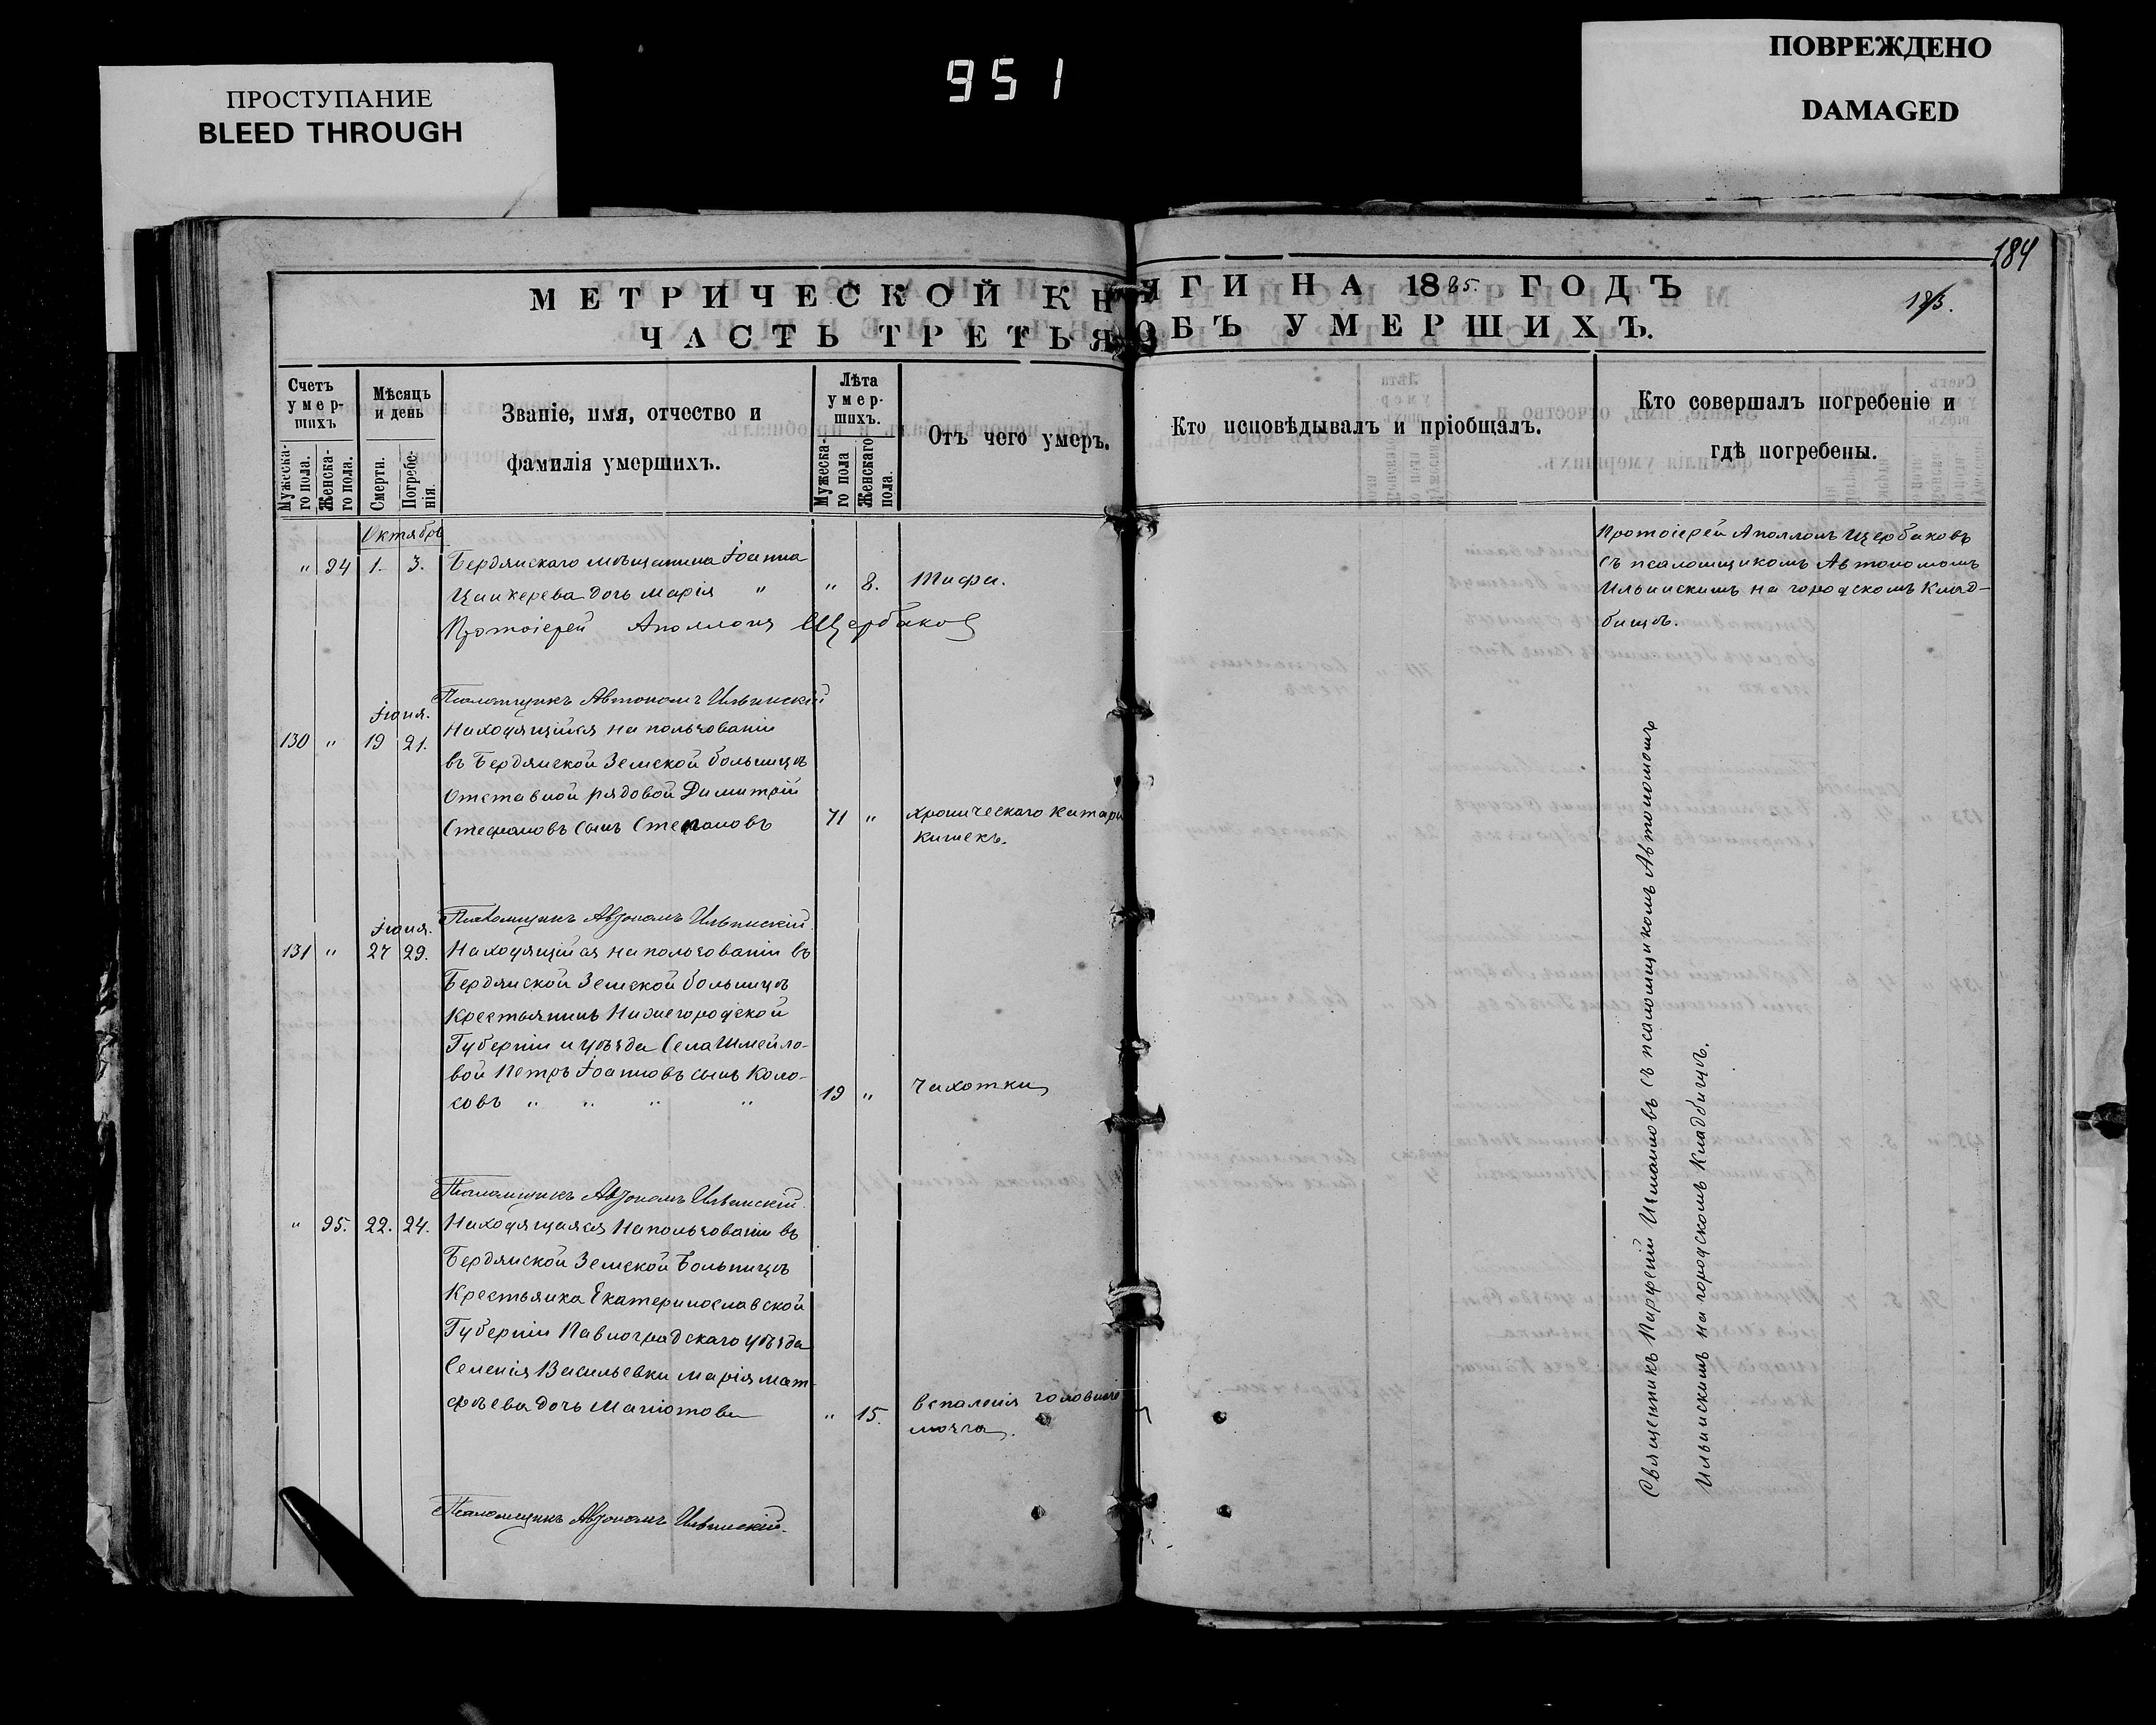 951
ПРОСТУПАНИЕ
BLEED THROUGH
ПОВРЕЖДЕНО
DAMAGED
184
183.
МЕТРИЧЕСКОЙ КНИГИ НА 1885. ГОДЪ
ЧАСТЬ ТРЕТЬЯ ОБЪ УМЕРШИХЪ.
Счетъ умер-шихъ
Мѣсяцъ и день
Званіе, имя, отчество и
фамилія умершихъ.
Лѣта умер-шихъ.
Отъ чего умеръ.
Кто исповѣдывалъ и пріобщалъ.
Кто совершалъ погребеніе и
гдѣ погребены.
Мужеска-го пола.
Женска-го пола.
Смерти.
Погребе-нія.
Мужеска-го пола
Женскаго пола.
Октябрь
" 94 1. 3. Бердянскаго мѣщанина Іоанна
дочь Марія " " 8. Тифа.
Протоіерей Аполлонъ Щербаковъ
Протоіерей Аполлонъ Щербаковъ
съ псаломщикомъ Автономомъ
Ильинскимъ на городскомъ Клад-
бищѣ.
Псаломщикъ Автономъ Ильинскій
Іюня.
130 " 19 21. Находящійся на пользованіи
въ Бердянской Земской больницѣ
Отставной рядовой Димитрій
Стефановъ сынъ Степановъ 71 " хроническаго катара
кишекъ.
Псаломщикъ Автономъ Ильинскій.
Іюня.
131 " 27 29. Находящійся на пользованіи въ
Бердянской Земской больницѣ
Крестьянинъ Нижегородской
Губерніи и уѣзда Села Шмейло-
вой Петръ Іоанновъ сынъ Коло-
совъ " " " " 19 " Чахотки
Псаломщикъ Автономъ Ильинскій.
" 95. 22. 24. Находящаяся на пользованіи въ
Бердянской Земской Больницѣ
Крестьянка Екатеринославской
Губерніи Павлоградскаго уѣзда
Селенія Васильевки Марія Мат-
фѣева дочь " 15. вспаленія головного
мозга.
Псаломщикъ Автономъ Ильинскій.
Священникъ Парфеній съ псаломщикомъ Автономомъ
Ильинскимъ на городскомъ Кладбищѣ.